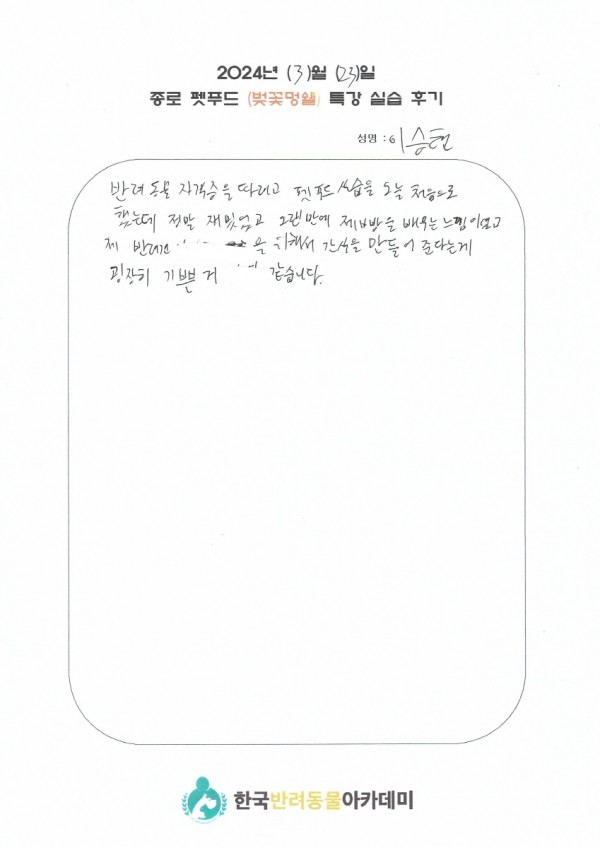 2024년 (3)월 (23)일
종로 펫푸드 (벚꽃멍쉘) 특강 실습 후기
성명 : 이승현
반려동물 자격증을 따려고 펫푸드 실습을 오늘 처음으로
했는데 정말 재밌었고 오랜만에 제빵을 배우는 느낌이였고
제 반려견 을 위해서 간식을 만들어 준다는게
굉장히 기쁜 거 같습니다.
한국반려동물아카데미